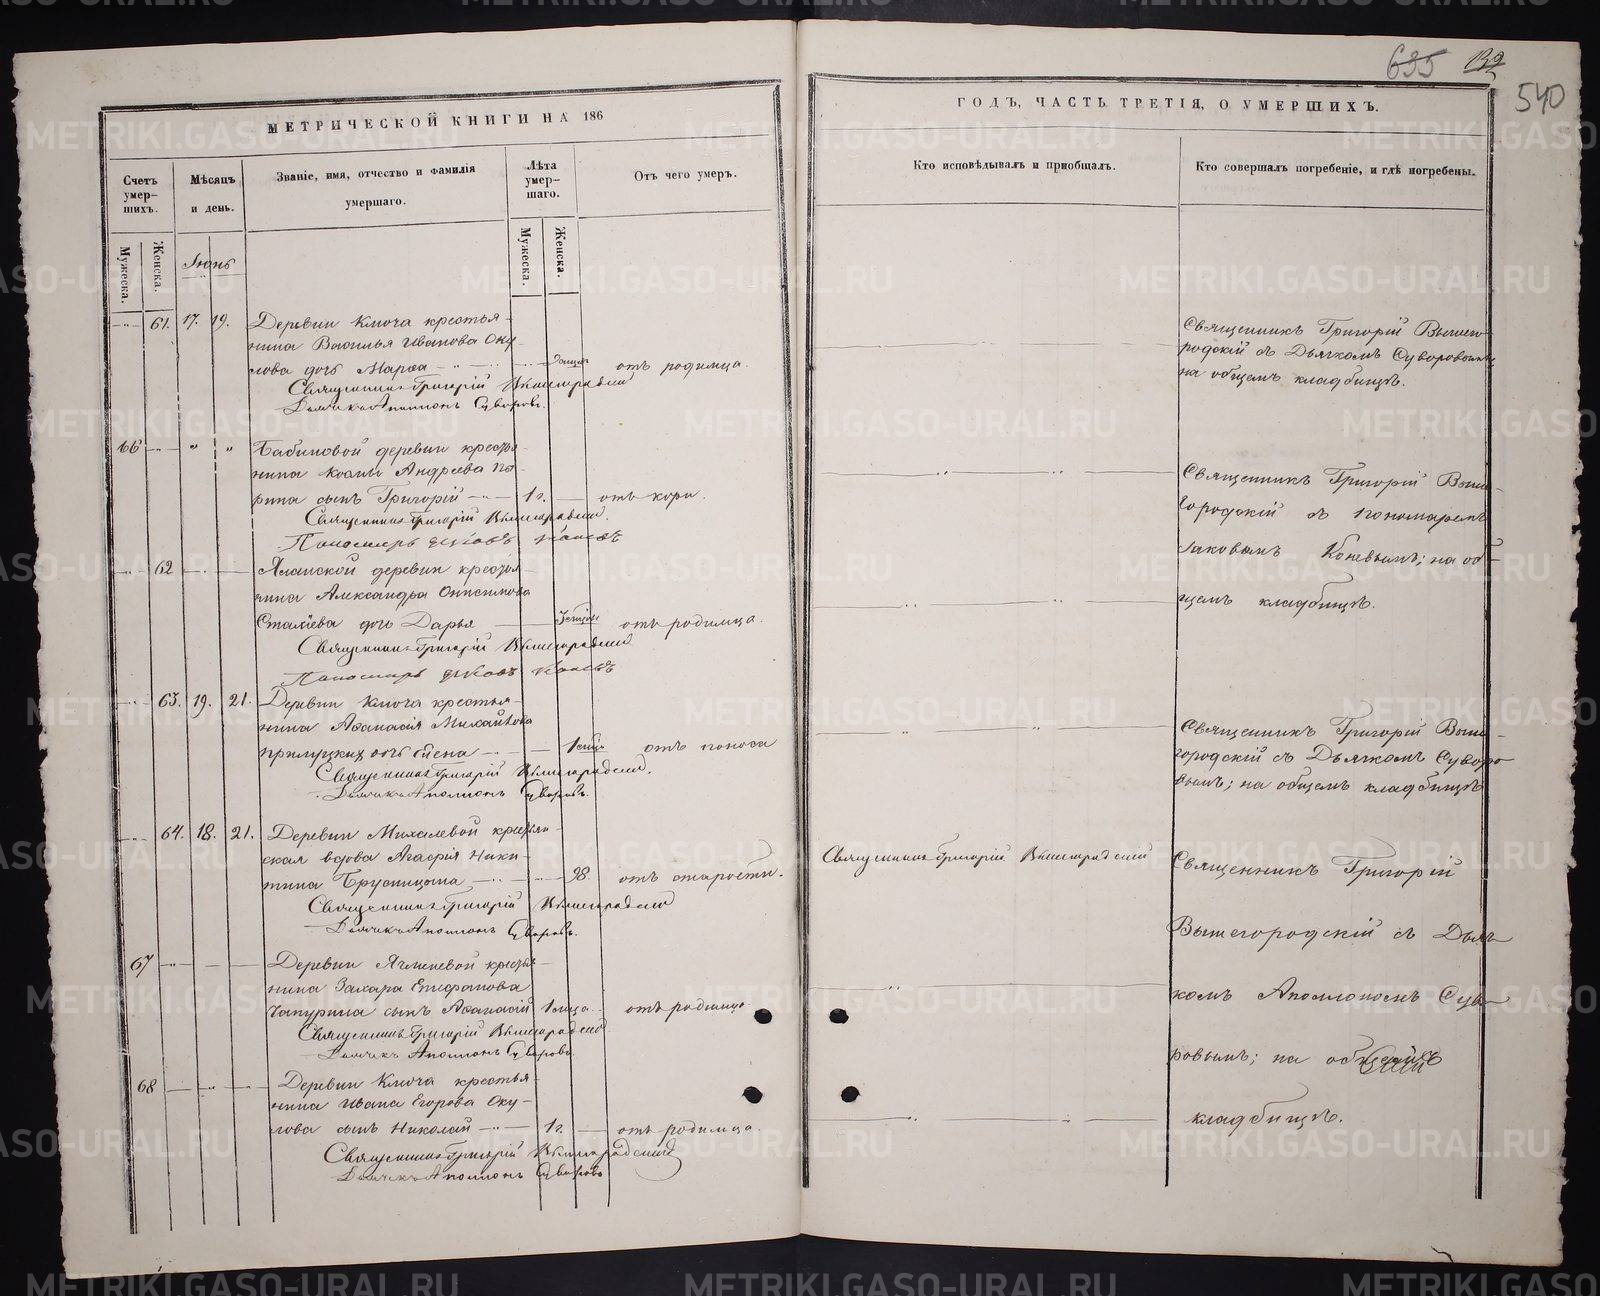 635 132
540
МЕТРИЧЕСКОЙ КНИГИ НА 186
ГОДЪ, ЧАСТЬ ТРЕТІЯ, О УМЕРШИХЪ.
Счетъ умер-шихъ.
Мѣсяцъ и день.
Званіе, имя, отчество и фамилія умершаго.
Лѣта умер-шаго.
Отъ чего умеръ.
Кто исповѣдывалъ и пріобщалъ.
Кто совершалъ погребеніе, и гдѣ погребены.
Мужеска.
Женска.
Мужеска.
Женска.
Іюнь
61. 17. 19. Деревни Ключа крестья-
нина Василья Иванова Оку
лова дочь Марѳа отъ родимца.
Священникъ Григорій Вышегородскій
Дьячекъ Аполлонъ Суворовъ.
Священникъ Григорій Вышего-
родскій съ Дьячкомъ Суворовымъ
на общемъ кладбищѣ.
66 " " Бабиновой деревни крестья
нина Козмы Андреева
сынъ Григорій 1 г. отъ кори.
Священникъ Григорій Вышегородскій.
Пономарь Іаковъ Коневъ
Священникъ Григорій Выше-
городскій съ пономаремъ
Іаковымъ Коневымъ; на об-
щемъ кладбищѣ.
62 деревни крестья
нина Александра Онисимова
дочь Дарья отъ родимца.
Священникъ Григорій Вышегородскій
Пономарь Іаковъ Коневъ
63. 19. 21. Деревни Ключа крестья-
нина Аѳанасія Михайлова
дочь Елена отъ поноса
Священникъ Григорій Вышегородскій.
Дьячекъ Аполлонъ Суворовъ.
Священникъ Григорій Выше-
городскій съ Дьячкомъ Суворо
вымъ; на общемъ кладбищѣ
64. 18. 21. Деревни Михалевой крестьян-
ская вдова Агафія Ники-
тина Брусницына 98. отъ старости.
Священникъ Григорій Вышегородскій
Дьячекъ Аполлонъ Суворовъ.
Священникъ Григорій Вышегородскій
Священникъ Григорій
Вышегородскій съ Дьяч-
комъ Аполлономъ Суво-
ровымъ; на общемъ
кладбищѣ.
67 Деревни Ячменевой крестья-
нина Захара Епифанова
Чапурина сынъ Аѳанасій отъ родимца
Священникъ Григорій Вышегородскій
Дьячекъ Аполлонъ Суворовъ.
68 " Деревни Ключа крестья-
нина Ивана Егорова Оку-
лова сынъ Николай 1 г. отъ родимца.
Священникъ Григорій Вышегородскій
Дьячекъ Аполлонъ Суворовъ
METRIKI.GASO-URAL.RU